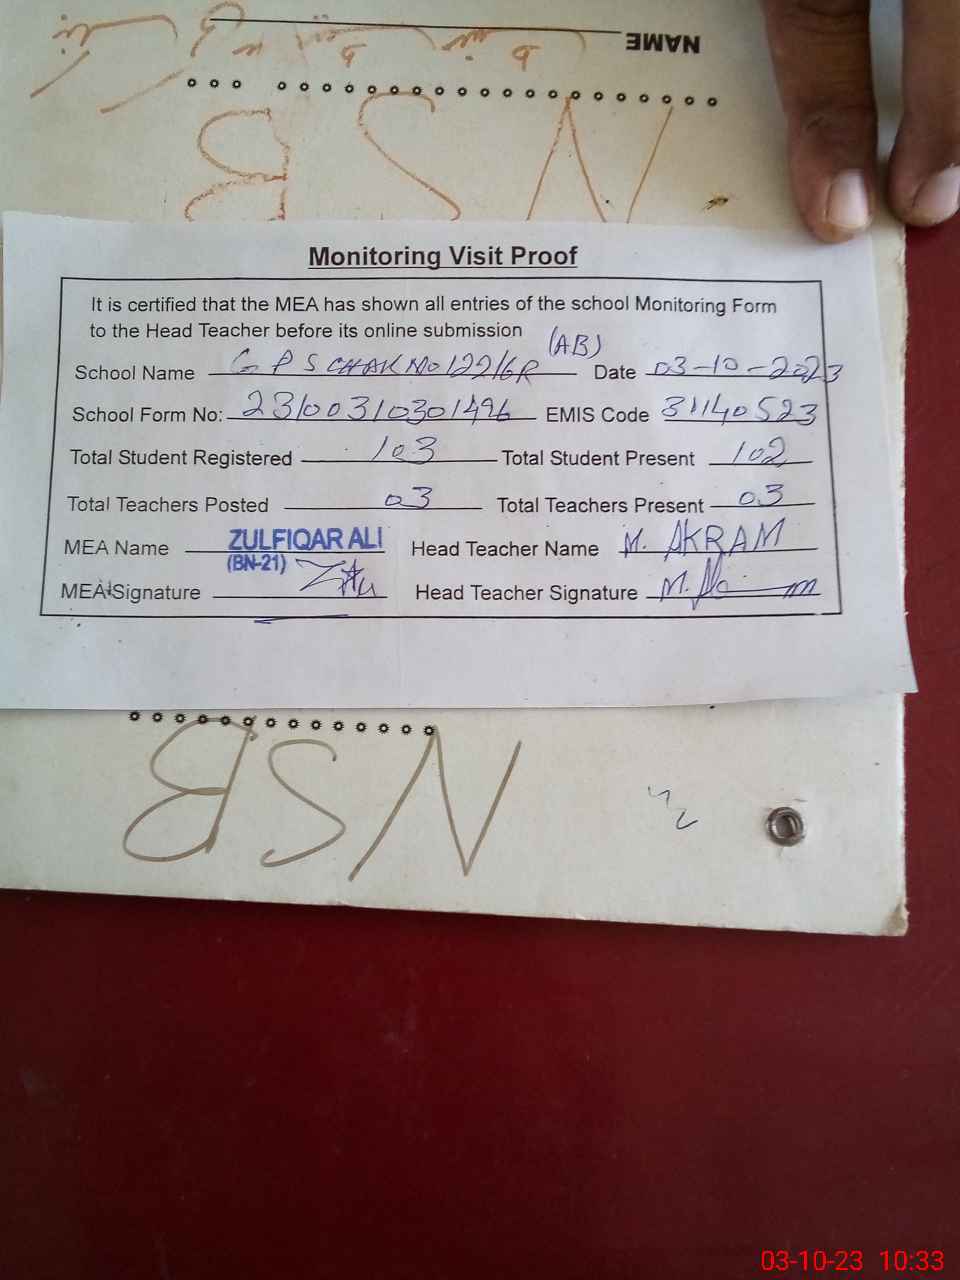 NAME
NSB
Monitoring Visit Proof
It is certified that the MEA has shown all entries of the school Monitoring Form
to the Head Teacher before its online submission
(AB)
School Name G P S CHAK NO 122/6R Date 03-10-2023
School Form No: 23100310301496 EMIS Code 31140523
Total Student Registered 103 Total Student Present 102
Total Teachers Posted 03 Total Teachers Present 03
MEA Name ZULFIQAR ALI Head Teacher Name M. AKRAM
(BN-21)
MEA Signature Head Teacher Signature
NSB
03-10-23 10:33